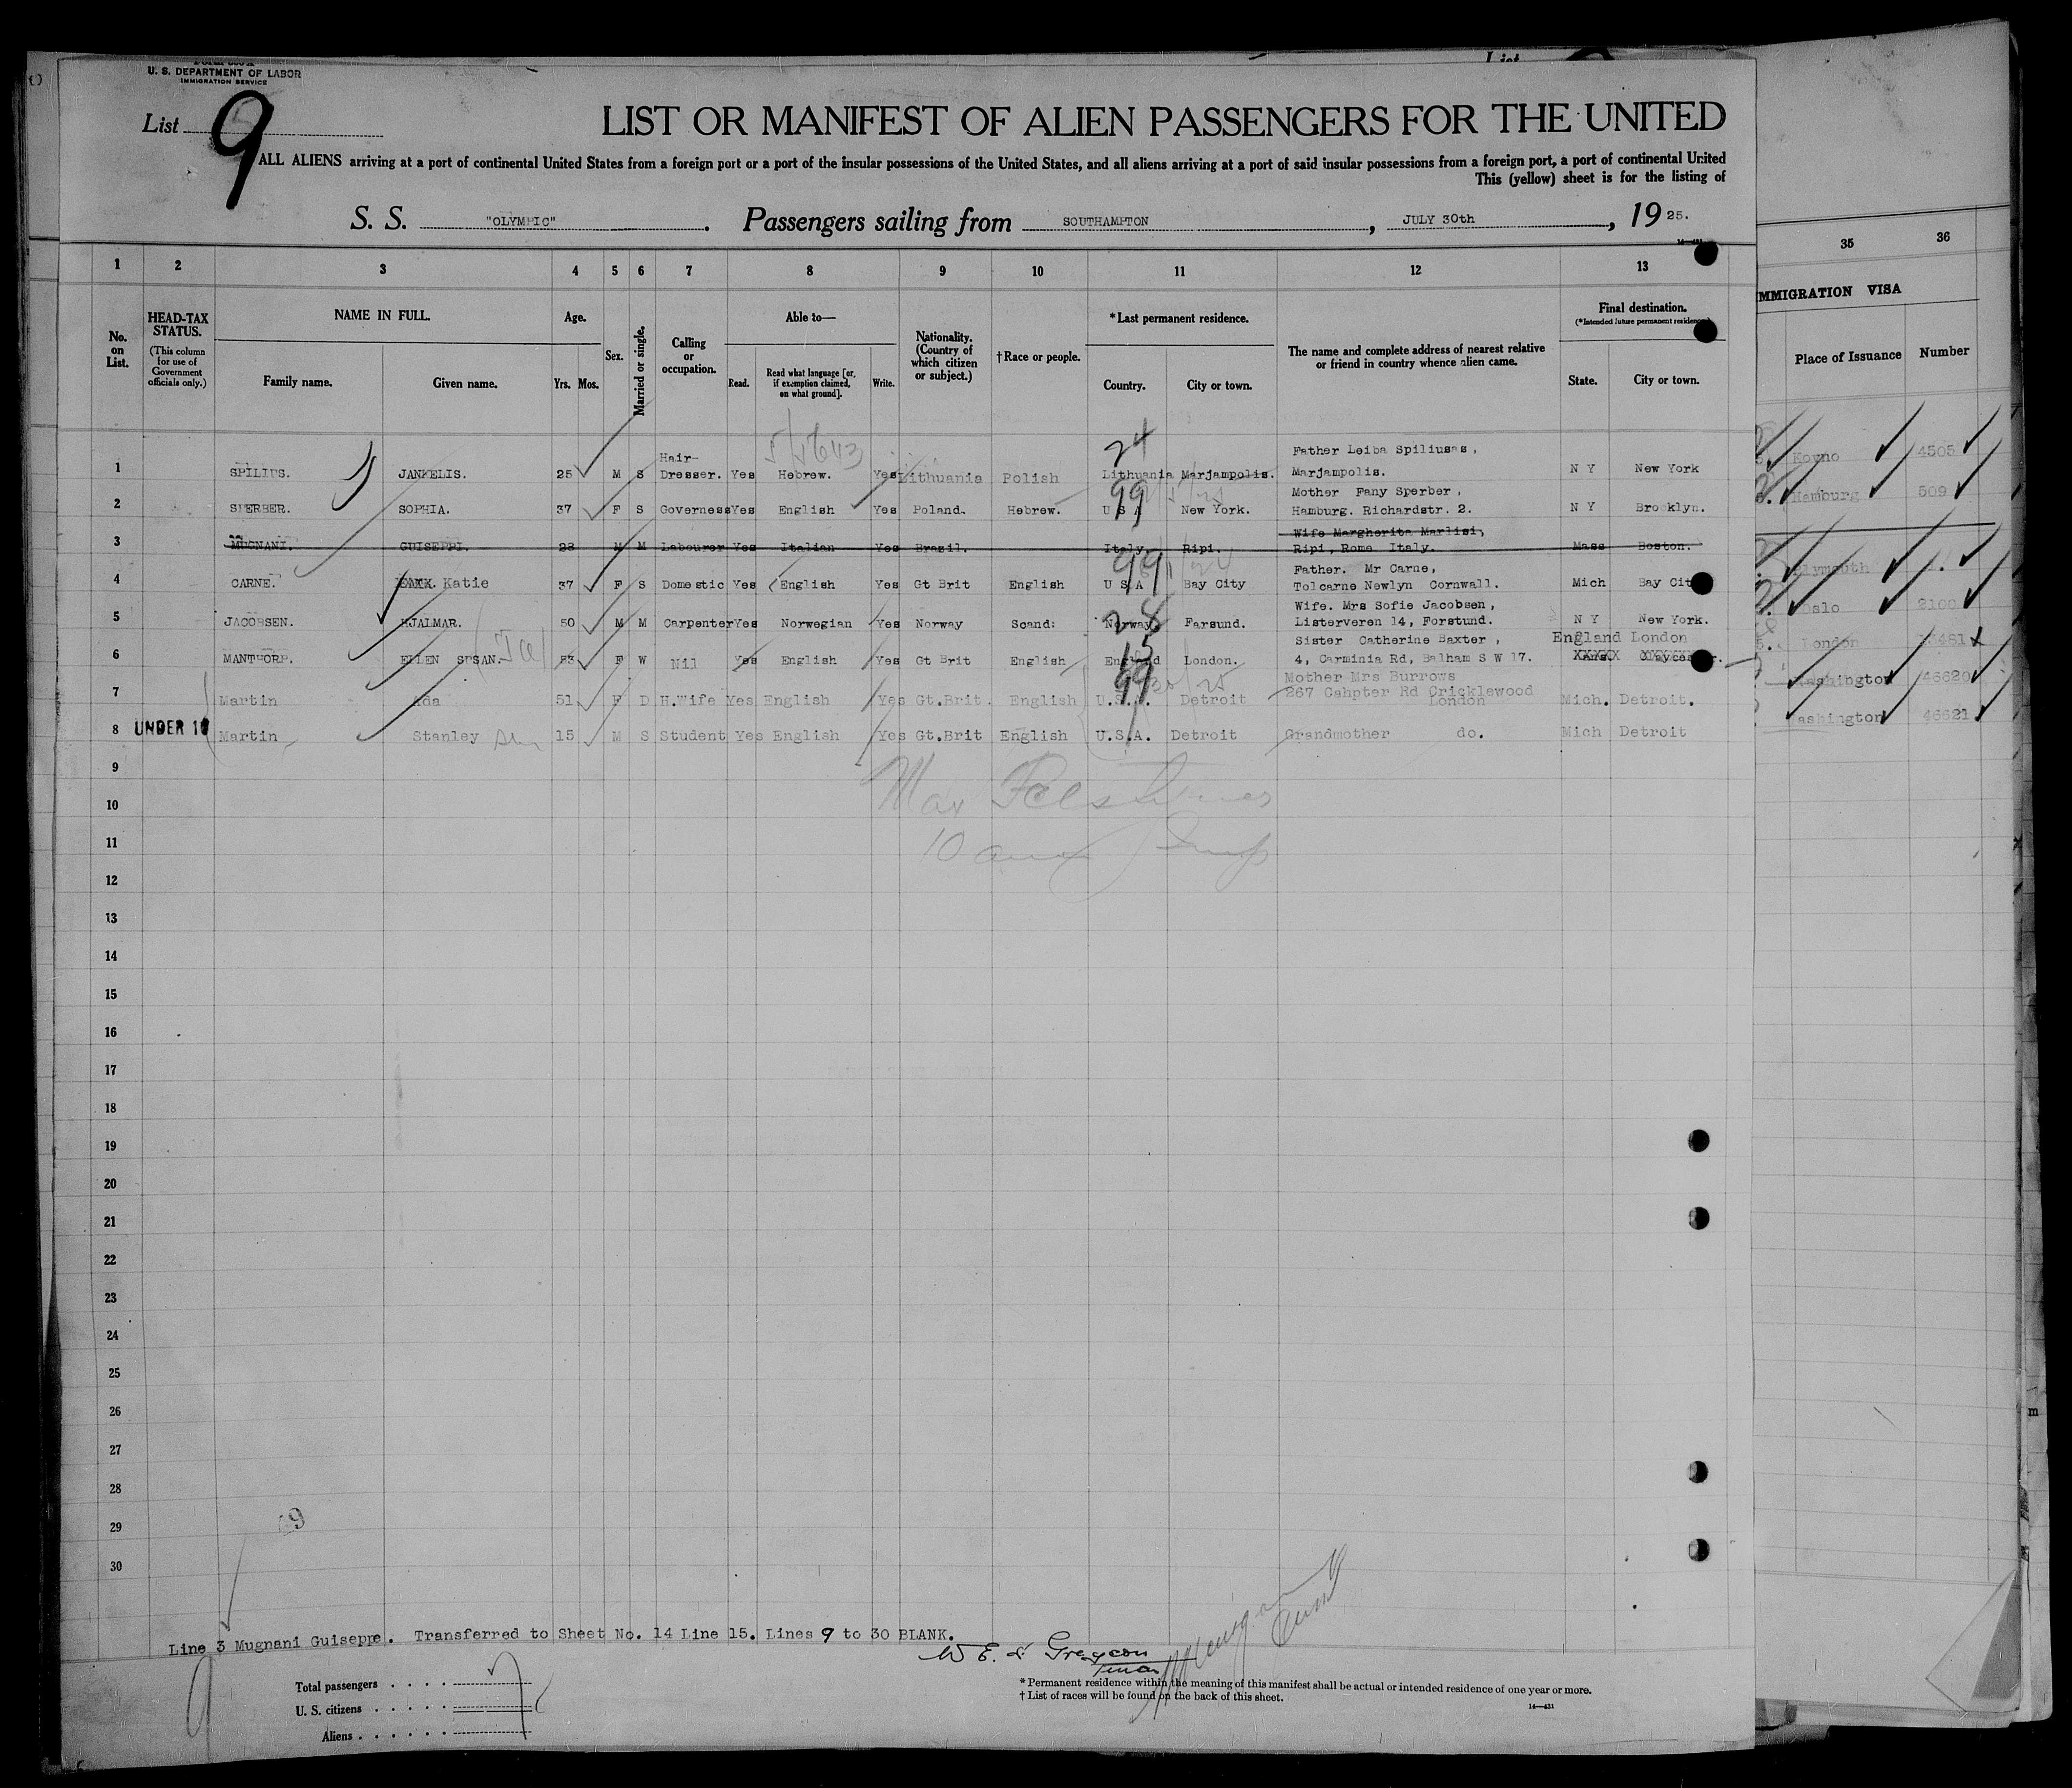 U. S. DEPARTMENT OF LABOR
IMMIGRATION SERVICE
List 9
List
LIST OR MANIFEST OF ALIEN PASSENGERS FOR THE UNITED
ALL ALIENS arriving at a port of continental United States from a foreign port or a port of the insular possessions of the United States, and all aliens arriving at a port of said insular possessions from a foreign port, a port of continental United
This (yellow) sheet is for the listing of
S. S. "OLYMPIC". Passengers sailing from SOUTHAMPTON, JULY 30th, 19 25.
1 2 3 4 5 6 7 8 9 10 11 12 13 35 36
No. on List.
HEAD-TAX STATUS.
(This column for use of Government officials only.)
NAME IN FULL.
Family name. Given name.
Age.
Yrs. Mos.
Sex.
Married or single.
Calling or occupation.
Able to—
Read.
Read what language [or, if exemption claimed, on what ground].
Write.
Nationality. (Country of which citizen or subject.)
†Race or people.
*Last permanent residence.
Country. City or town.
The name and complete address of nearest relative or friend in country whence alien came.
Final destination.
(*Intended future permanent residence)
State. City or town.
IMMIGRATION VISA
Place of Issuance Number
24
1 SPILIUS. JANKELIS. 25 M S Hair-Dresser. Yes Hebrew. Yes Lithuania Polish Lithuania Marjampolis. Father Leiba Spiliusas, Marjampolis. N Y New York Kovno 4505
99
2 SPERBER. SOPHIA. 37 F S Governess Yes English Yes Poland. Hebrew. U S A New York. Mother Fany Sperber, Hamburg. Richardstr. 2. N Y Brooklyn. Hamburg 509
3 MUGNANI. GUISEPPI. 28 M M Labourer Yes Italian Yes Brazil. Italy. Ripi. Wife Margherita Marlisi, Ripi, Rome Italy. Mass Boston.
99
4 CARNE. Katie 37 F S Domestic Yes English Yes Gt Brit English U S A Bay City Father. Mr Carne, Tolcarne Newlyn Cornwall. Mich Bay Cit Plymouth
28
5 JACOBSEN. HJALMAR. 50 M M Carpenter Yes Norwegian Yes Norway Scand: Norway Farsund. Wife. Mrs Sofie Jacobsen, Listerveren 14, Forstund. N Y New York. Oslo 2100
15
6 MANTHORP. ELLEN SUSAN. 53 F W Nil Yes English Yes Gt Brit English England London. Sister Catherine Baxter, 4, Carminia Rd, Balham S W 17. England London London 13481
99
7 Martin Ada 51 F D H.Wife Yes English Yes Gt.Brit. English U.S.A. Detroit Mother Mrs Burrows 267 Cahpter Rd Cricklewood London Mich. Detroit. Washington 46620
UNDER 16
8 Martin Stanley 15 M S Student Yes English Yes Gt.Brit English U.S.A. Detroit Grandmother do. Mich Detroit Washington 46621
9
10
11
12
13
14
15
16
17
18
19
20
21
22
23
24
25
26
27
28
29
30
Line 3 Mugnani Guiseppe. Transferred to Sheet No. 14 Line 15. Lines 9 to 30 BLANK.
Total passengers
U. S. citizens
Aliens
* Permanent residence within the meaning of this manifest shall be actual or intended residence of one year or more.
† List of races will be found on the back of this sheet.
14—431